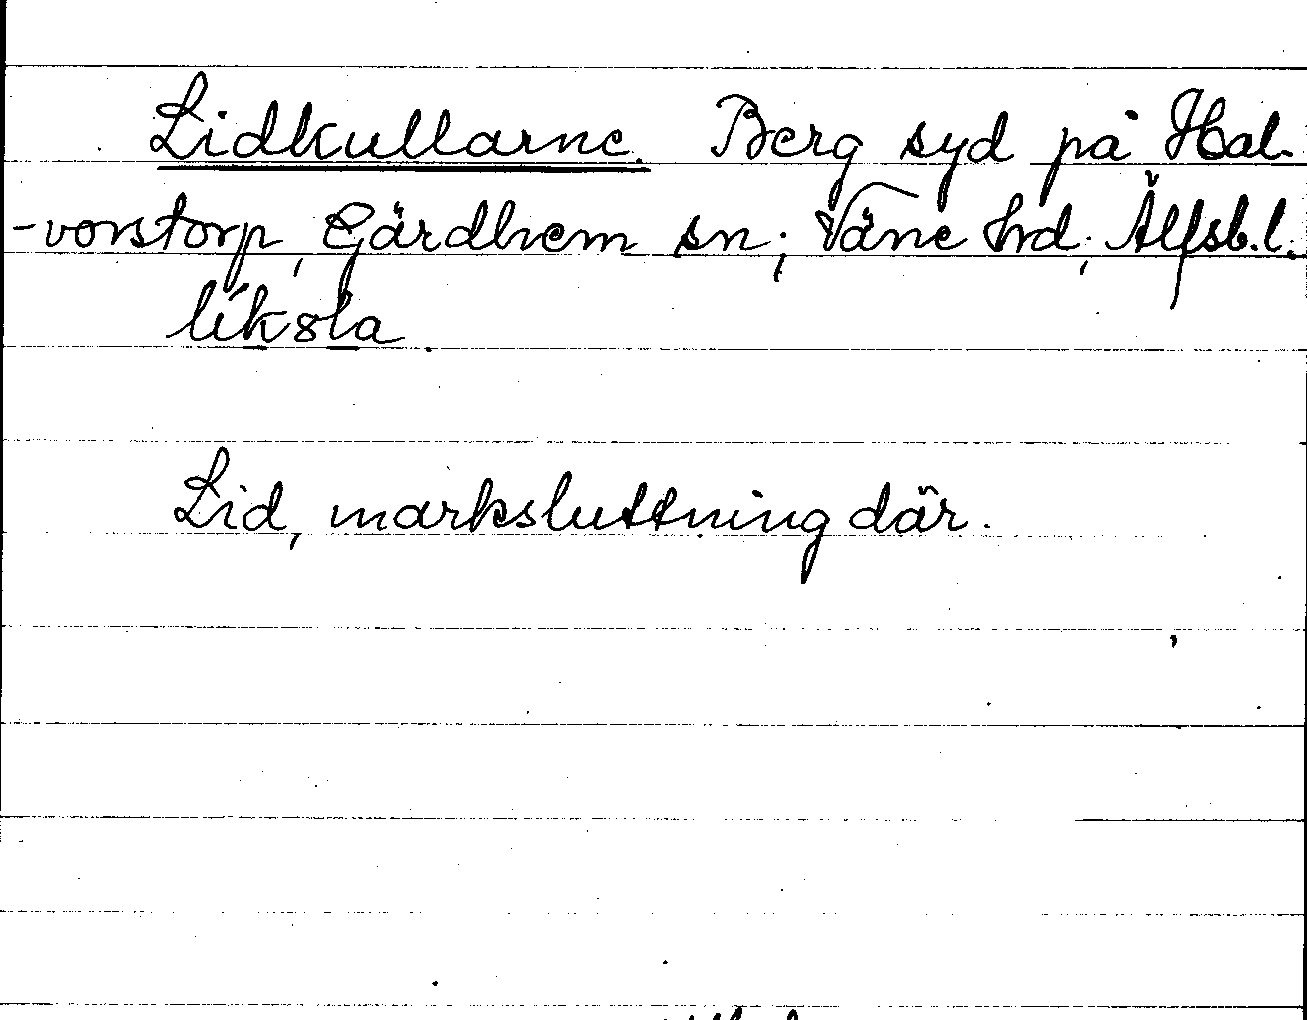 Lidkullarne. Berg syd på Hal-
-vorstorp, Gärdhem sn; Väne hrd; Älfsb.l.
Lid, marksluttning där.